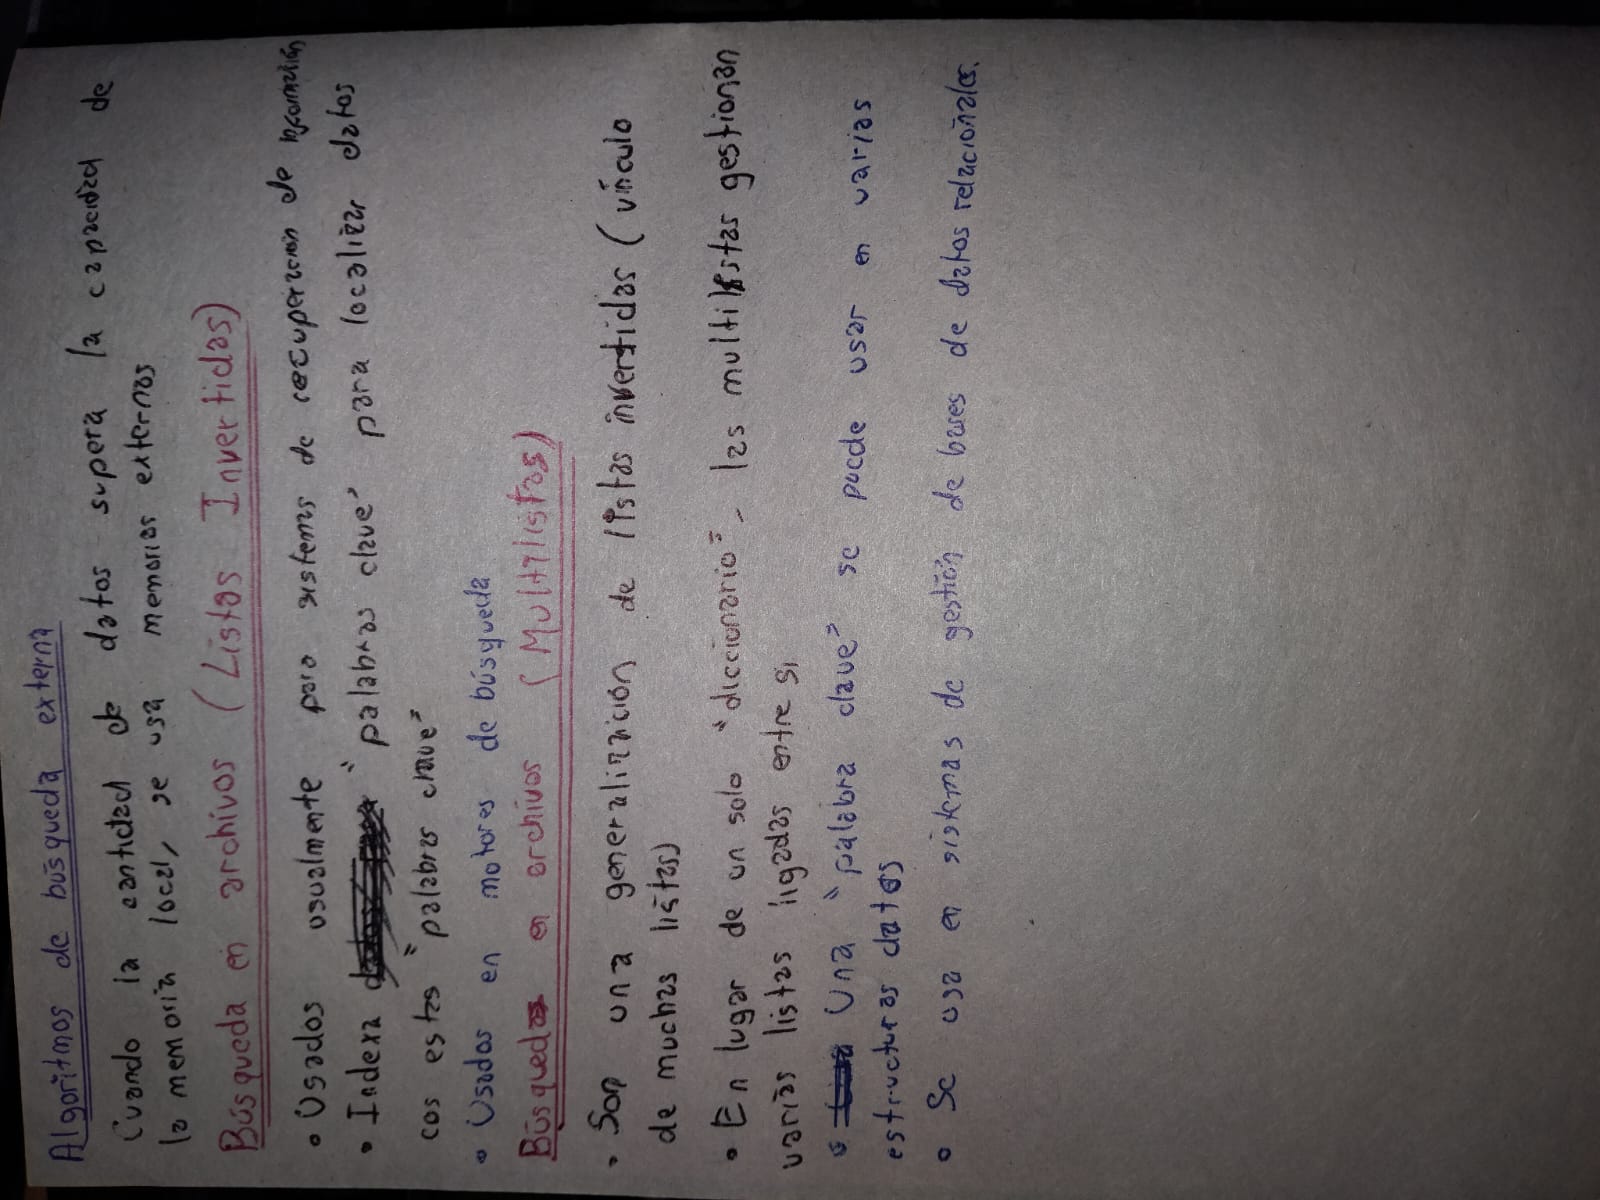 Algoritmos de búsqueda externa
Cuando la cantidad de datos supera la capacidad de
la memoria local, se usa memorias externas
Búsqueda en archivos (Listas Invertidas)
• Usados usualmente para sistemas de recuperación de información
• Indexa "palabras clave" para localizar datos
cos estas "palabras clave"
• Usados en motores de búsqueda
Búsqueda en archivos (Multilistas)
• Son una generalización de listas invertidas (vínculo
de muchas listas)
• En lugar de un solo "diccionario", las multilistas gestionan
varias listas ligadas entre si
• Una "palabra clave" se puede usar en varias
estructuras datos
• Se usa en sistemas de gestión de bases de datos relacionales.